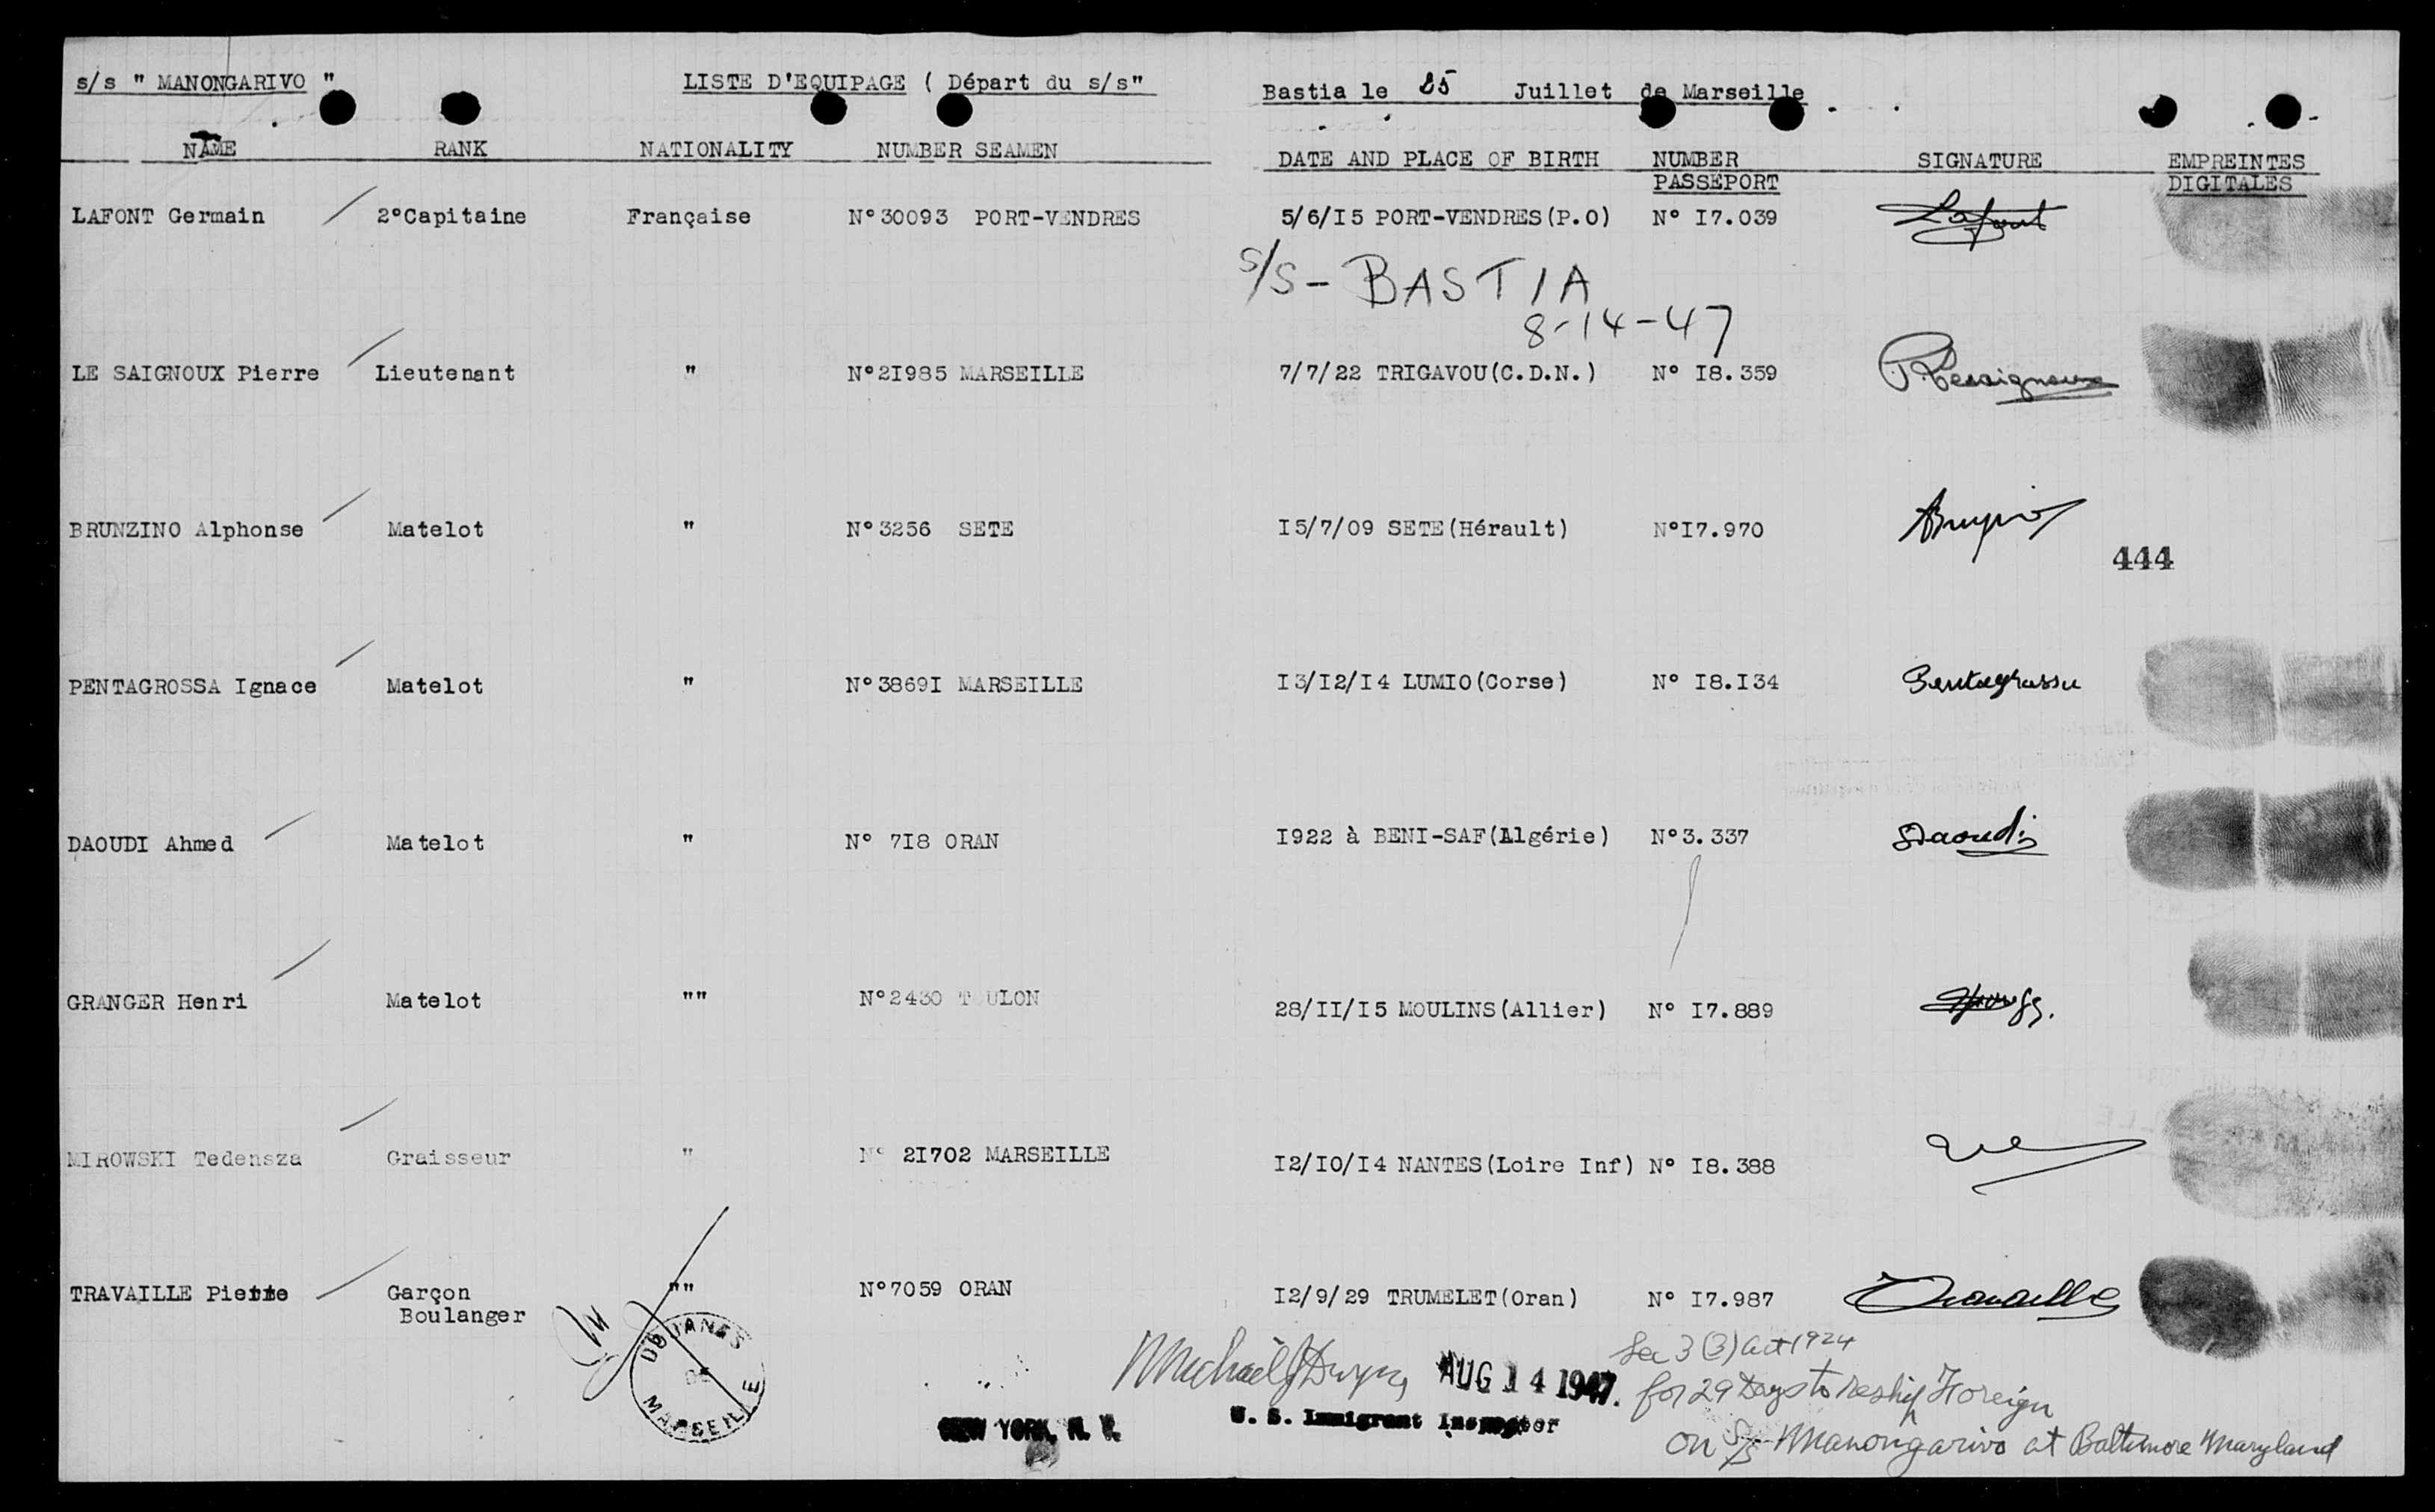 s/s " MANONGARIVO " LISTE D'EQUIPAGE ( Départ du s/s" Bastia le 25 Juillet de Marseille
NAME RANK NATIONALITY NUMBER SEAMEN DATE AND PLACE OF BIRTH NUMBER PASSEPORT SIGNATURE EMPREINTES DIGITALES
LAFONT Germain 2°Capitaine Française N°30093 PORT-VENDRES 5/6/I5 PORT-VENDRES(P.O) N° I7.039 Lafont
s/s - BASTIA
8-14-47
LE SAIGNOUX Pierre Lieutenant " N°2I985 MARSEILLE 7/7/22 TRIGAVOU(C.D.N.) N° I8.359 PLesaignoux
BRUNZINO Alphonse Matelot " N°3256 SETE I5/7/09 SETE(Hérault) N°I7.970
444
PENTAGROSSA Ignace Matelot " N°3869I MARSEILLE I3/I2/I4 LUMIO(Corse) N° I8.I34 Pentagrossa
DAOUDI Ahmed Matelot " N° 7I8 ORAN I922 à BENI-SAF(Algérie) N°3.337 Daoudi
GRANGER Henri Matelot "" N°2430 TOULON 28/II/I5 MOULINS(Allier) N° I7.889
MIROWSKI Tedensza Graisseur " N° 2I702 MARSEILLE I2/I0/I4 NANTES(Loire Inf) N° I8.388
TRAVAILLE Pierre Garçon Boulanger "" N°7059 ORAN I2/9/29 TRUMELET(Oran) N° I7.987 Travaille
DOUANES DE MARSEILLE
Michael J Dwyer AUG 14 1947. Sec 3 (3) act 1924
for 29 Days to reship Foreign
NEW YORK, N. Y. U. S. Immigrant Inspector
on S/S Manongarivo at Baltimore Maryland